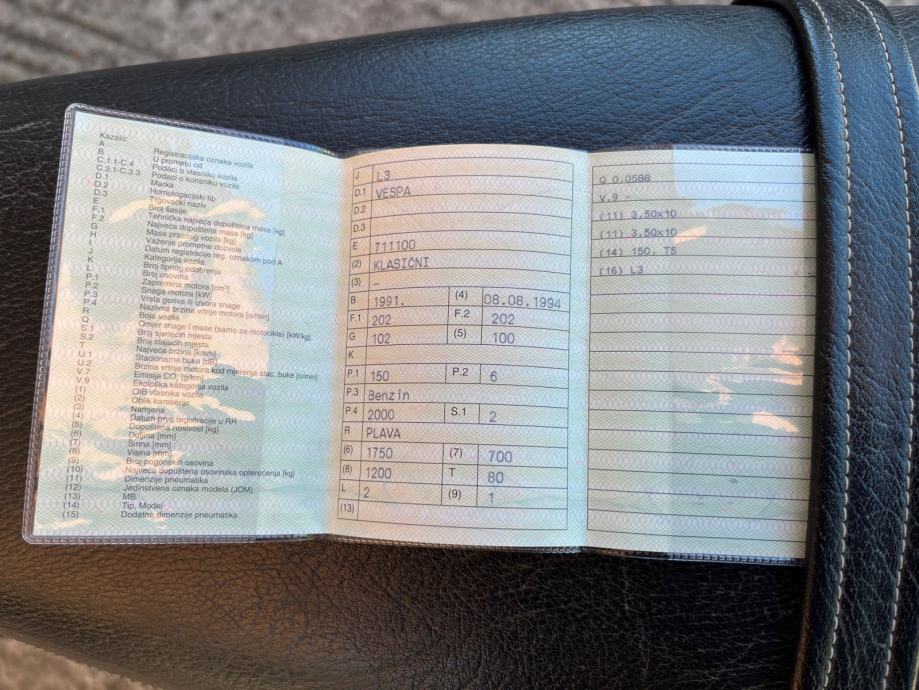 Kazalo:
A Registracijska oznaka vozila
B U prometu od
C.1.1-C.4 Podaci o vlasniku vozila
C.3.1-C.3.3 Podaci o korisniku vozila
D.1 Marka
D.2 Homologacijski tip
D.3 Trgovački naziv
E Broj šasije
F.1 Tehnička najveća dopuštena masa [kg]
F.2 Najveća dopuštena masa [kg]
G Masa praznog vozila [kg]
H Važenje prometne dozvole
I Datum registracije reg. oznakom pod A
J Kategorija vozila
K Broj tipnog odobrenja
L Broj osovina
P.1 Zapremina motora [cm³]
P.2 Snaga motora [kW]
P.3 Vrsta goriva ili izvora snage
P.4 Nazivna brzina vrtnje motora [o/min]
R Boja vozila
Q Omjer snage i mase (samo za motocikle) [kW/kg]
S.1 Broj sjedećih mjesta
S.2 Broj stajaćih mjesta
T Najveća brzina [km/h]
U.1 Stacionarna buka [dB]
U.2 Brzina vrtnje motora kod mjerenja stac. buke [o/min]
V.7 Emisija CO₂ [g/km]
V.9 Ekološka kategorija vozila
(1) OIB vlasnika vozila
(2) Oblik karoserije
(3) Namjena
(4) Datum prve registracije u RH
(5) Dopuštena nosivost [kg]
(6) Duljina [mm]
(7) Širina [mm]
(8) Visina [mm]
(9) Broj pogonskih osovina
(10) Najveća dopuštena osovinska opterećenja [kg]
(11) Dimenzije pneumatika
(12) Jedinstvena oznaka modela (JOM)
(13) MB
(14) Tip, Model
(15) Dodatne dimenzije pneumatika
J L3
D.1 VESPA
D.2
D.3
E 711100
(2) KLASIČNI
(3) -
B 1991. (4) 08.08.1994
F.1 202 F.2 202
G 102 (5) 100
K
P.1 150 P.2 6
P.3 Benzin
P.4 2000 S.1 2
R PLAVA
(6) 1750 (7) 700
(8) 1200 T 80
L 2 (9) 1
(13)
Q 0.0588
V.9 -
(11) 3.50x10
(11) 3.50x10
(14) 150, T5
(16) L3